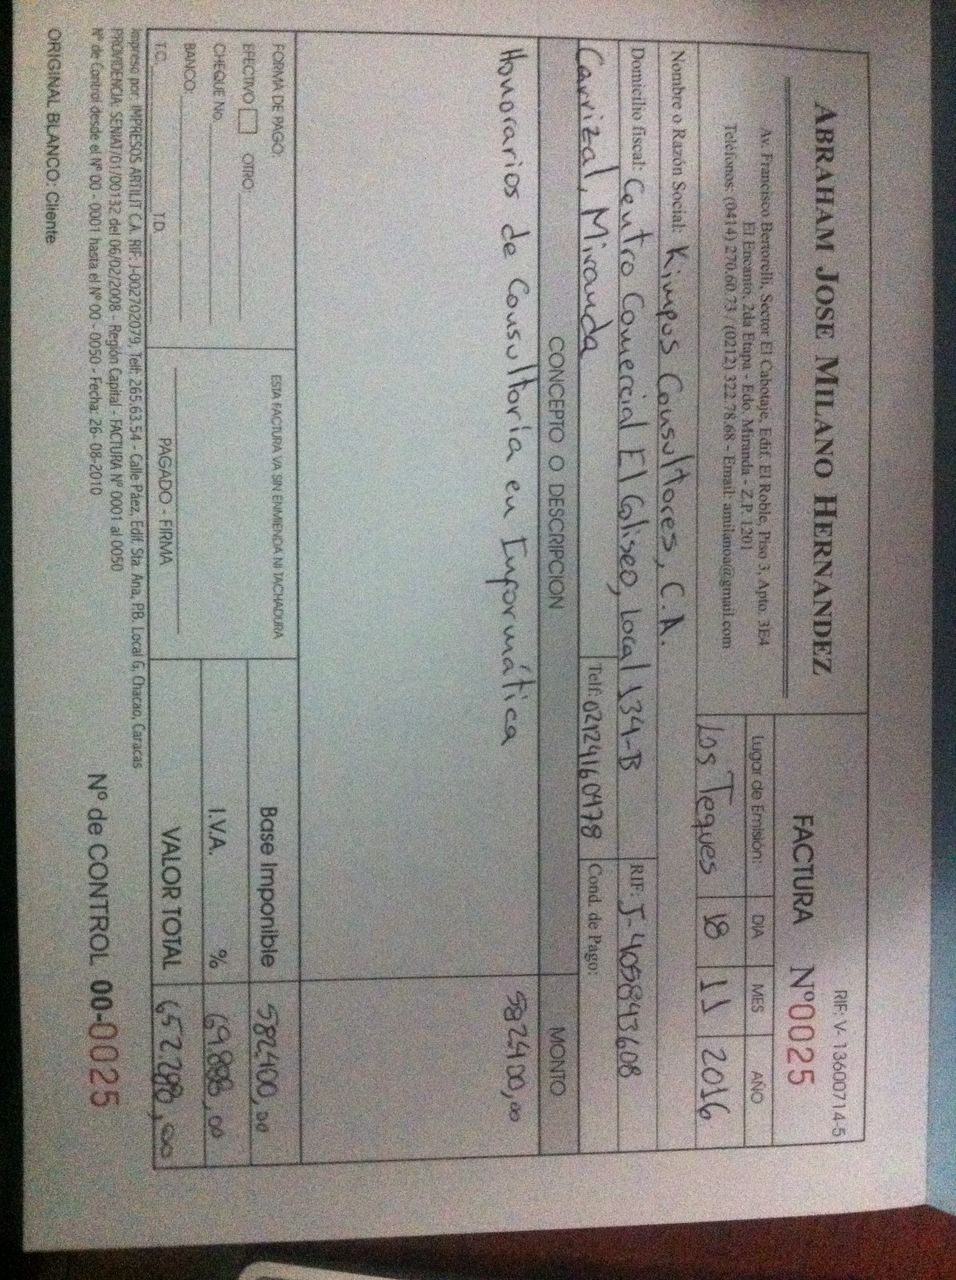 ABRAHAM JOSE MILANO HERNANDEZ
Av. Francisco Bertorelli, Sector El Cabotaje, Edif. El Roble, Piso 3, Apto. 3E4
El Encanto, 2da Etapa - Edo. Miranda - Z.P. 1201
Teléfonos: (0414) 270.60.73 / (0212) 322.78.68 - Email: amilanoa@gmail.com
RIF: V- 13600714-5
FACTURA Nº 0025
Lugar de Emisión: DIA MES AÑO
Los Teques 18 11 2016
Nombre o Razón Social: Kimpus Consultores, C.A.
Domicilio fiscal: Centro Comercial El Coliseo, Local 134-B RIF: J-405843608
Carrizal, Miranda Telf: 02124160478 Cond. de Pago:
CONCEPTO O DESCRIPCION MONTO
Honorarios de Consultoría en Informática 582400,00
FORMA DE PAGO:
EFECTIVO OTRO:
CHEQUE No.
BANCO:
T.C. T.D.
ESTA FACTURA VA SIN ENMIENDA NI TACHADURA
PAGADO - FIRMA
Base Imponible 582400,00
I.V.A. % 69.888,00
VALOR TOTAL 652.288,00
Impreso por: IMPRESOS ARTILIT C.A. RIF: J-002702079, Telf: 265.63.54 - Calle Páez, Edif. Sta. Ana, PB. Local G, Chacao, Caracas
PROVIDENCIA: SENIAT/01/00132 del 06/02/2008 - Región Capital - FACTURA Nº 0001 al 0050
Nº de Control desde el Nº 00 - 0001 hasta el Nº 00 - 0050 - Fecha: 26-08-2010
Nº de CONTROL 00-0025
ORIGINAL BLANCO: Cliente